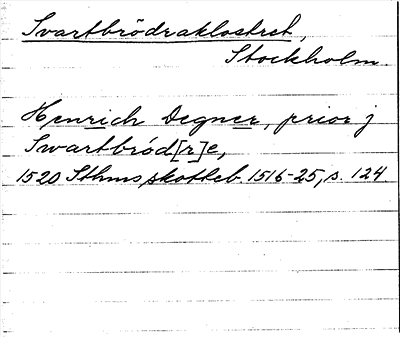 Svartbrödraklostret,
Stockholm.
Henrich Degner, prior j
Swartbröd[r]e,
1520 Sthms skotteb. 1516-25, s. 124